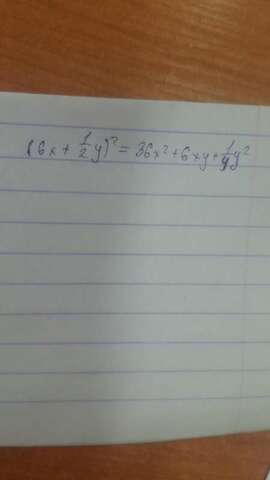 (6x + 1/2 y)² = 36x² + 6xy + 1/4 y²